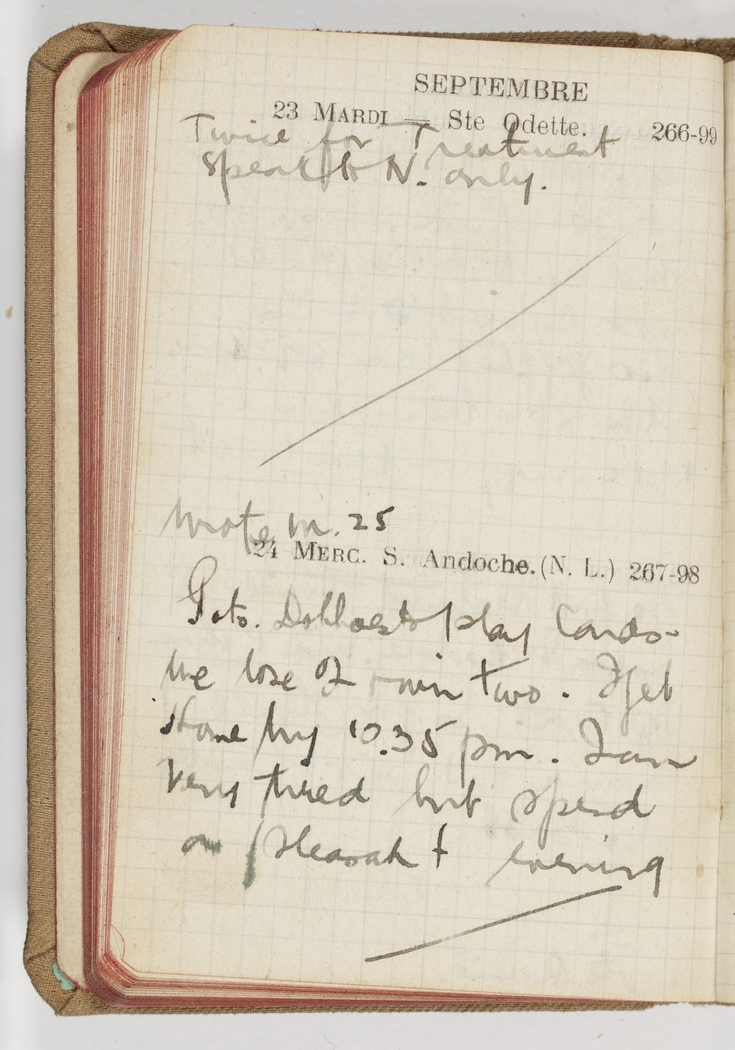 SEPTEMBRE
23 MARDI — Ste Odette. 266-99
Twice for Treatment
Speak to N. only.
Wrote M. 25
24 MERC. S. Andoche. (N. L.) 267-98
G to. to play Cards-
we lose 2 win two. I get
Home by 10.35 pm. I am
Very tired but spend
a pleasant evening